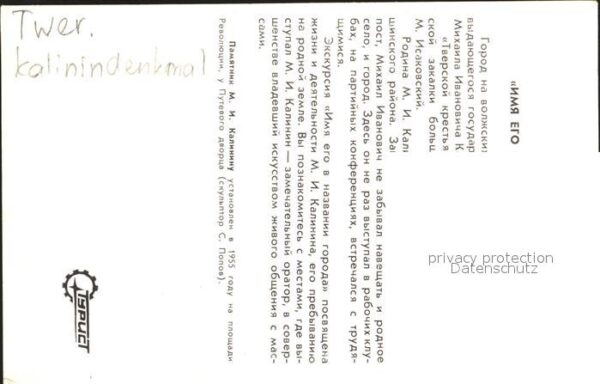 Twer.
Kalinindenkmal
«ИМЯ ЕГО
Город на волжски
выдающегося государ
Михаила Ивановича К
«Тверской крестья
ской закалки больш
М. Исаковский.
Родина М. И. Кали
шинского района. За
пост, Михаил Иванович не забывал навещать и родное
село, и город. Здесь он не раз выступал в рабочих клу-
бах, на партийных конференциях, встречался с трудя-
щимися.
Экскурсия «Имя его в названии города» посвящена
жизни и деятельности М. И. Калинина, его пребыванию
на родной земле. Вы познакомитесь с местами, где вы-
ступал М. И. Калинин — замечательный оратор, в совер-
шенстве владевший искусством живого общения с мас-
сами.
Памятник М. И. Калинину установлен в 1955 году на площади
Революции, у Путевого дворца (скульптор С. Попов).
ТУРИСТ
privacy protection
Datenschutz